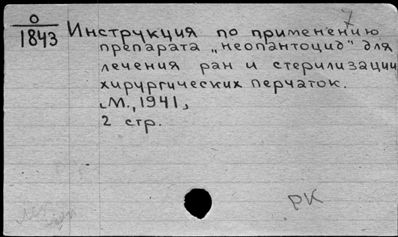 О
1843
Инструкция по применению
препарата „неопантоцид" для
лечения ран и стерилизации
хирургических перчаток.
[М., 1941]
2 стр.
РК